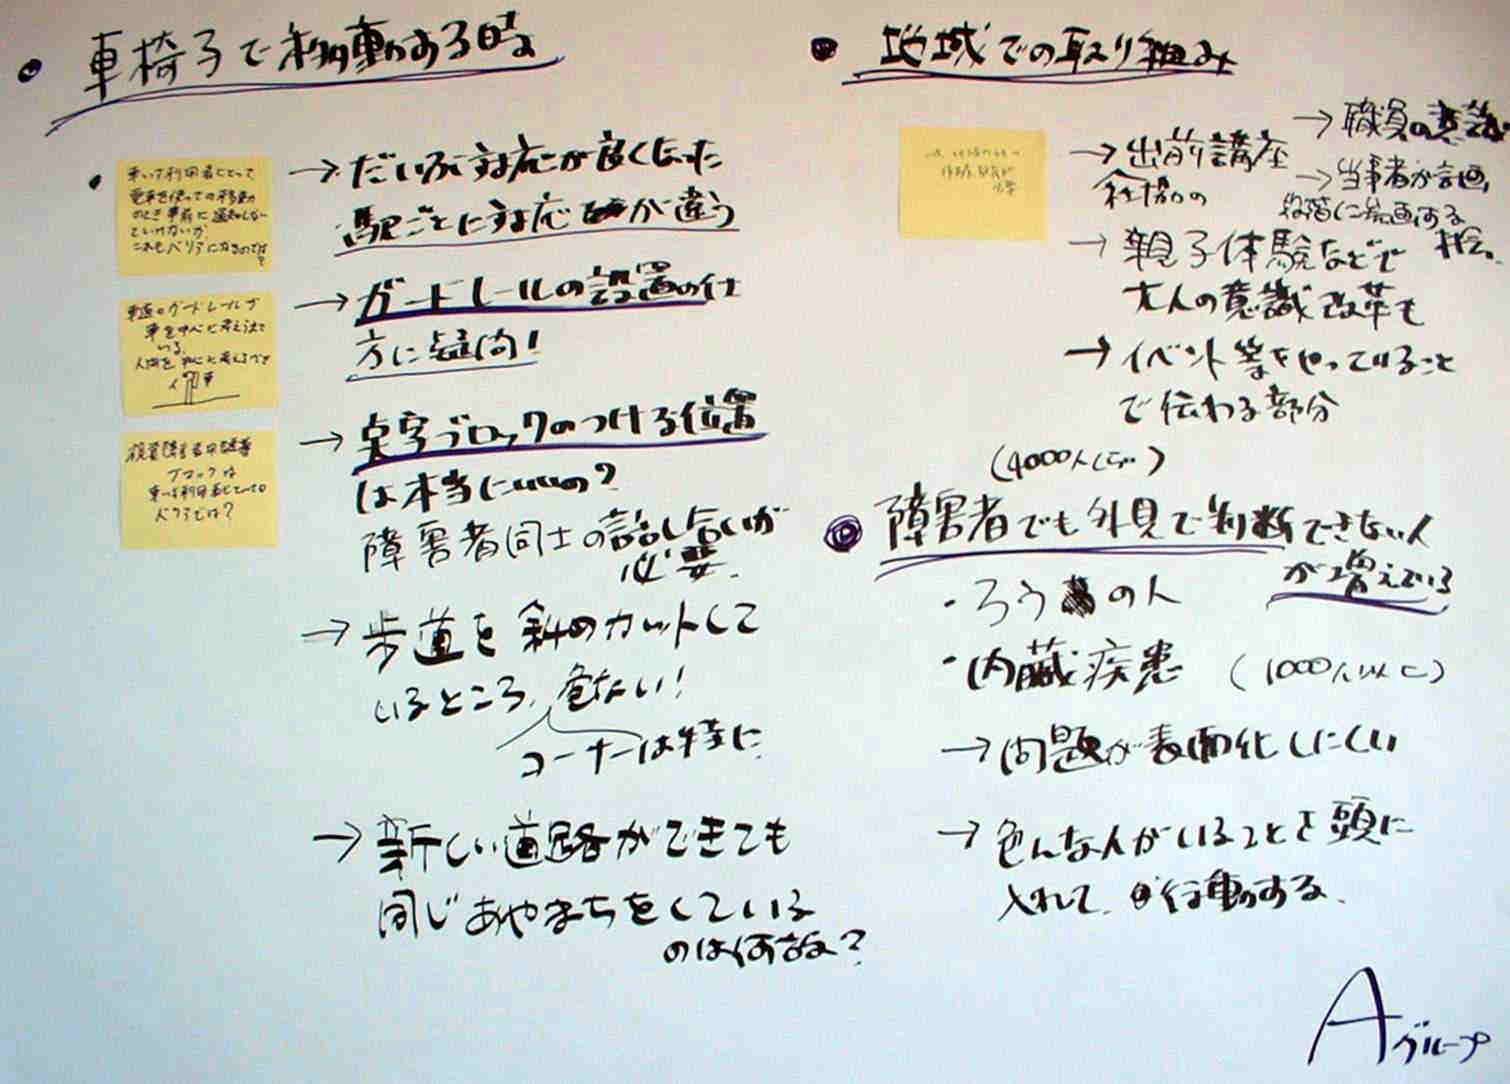 車椅子で移動する時
車いす利用者にとって
電車を使っての移動
のとき事前に通知しない
といけないが
これもバリアになるのでは?
→だいぶ対応が良くなった
駅ごとに対応が違う
車道のガードレールが
車を中心に考えられて
いる。
人間を中心に考えるべき
人 車
→ガードレールの設置の仕
方に疑問!
視覚障害者用誘導
ブロックは
車いす利用者にとっての
バリアでは?
→点字ブロックのつける位置
は本当にいいの?
障害者同士の話し合いが
必要。
→歩道を斜めカットして
いるところ、危ない!
コーナーは特に
→新しい道路ができても
同じあやまちをしている
のは何故?
地域での取り組み
→出前講座
社協の
→職員の意識
→当事者が計画
段階に参画する
機会。
→親子体験などで
大人の意識改革も
→イベント等をやっていること
で伝わる部分
(4000人くらい)
障害者でも外見で判断できない人
が増えている
・ろうの人
・内臓疾患 (1000人以上)
→問題が表面化しにくい
→色んな人がいることを頭に
入れて、行動する。
Aグループ